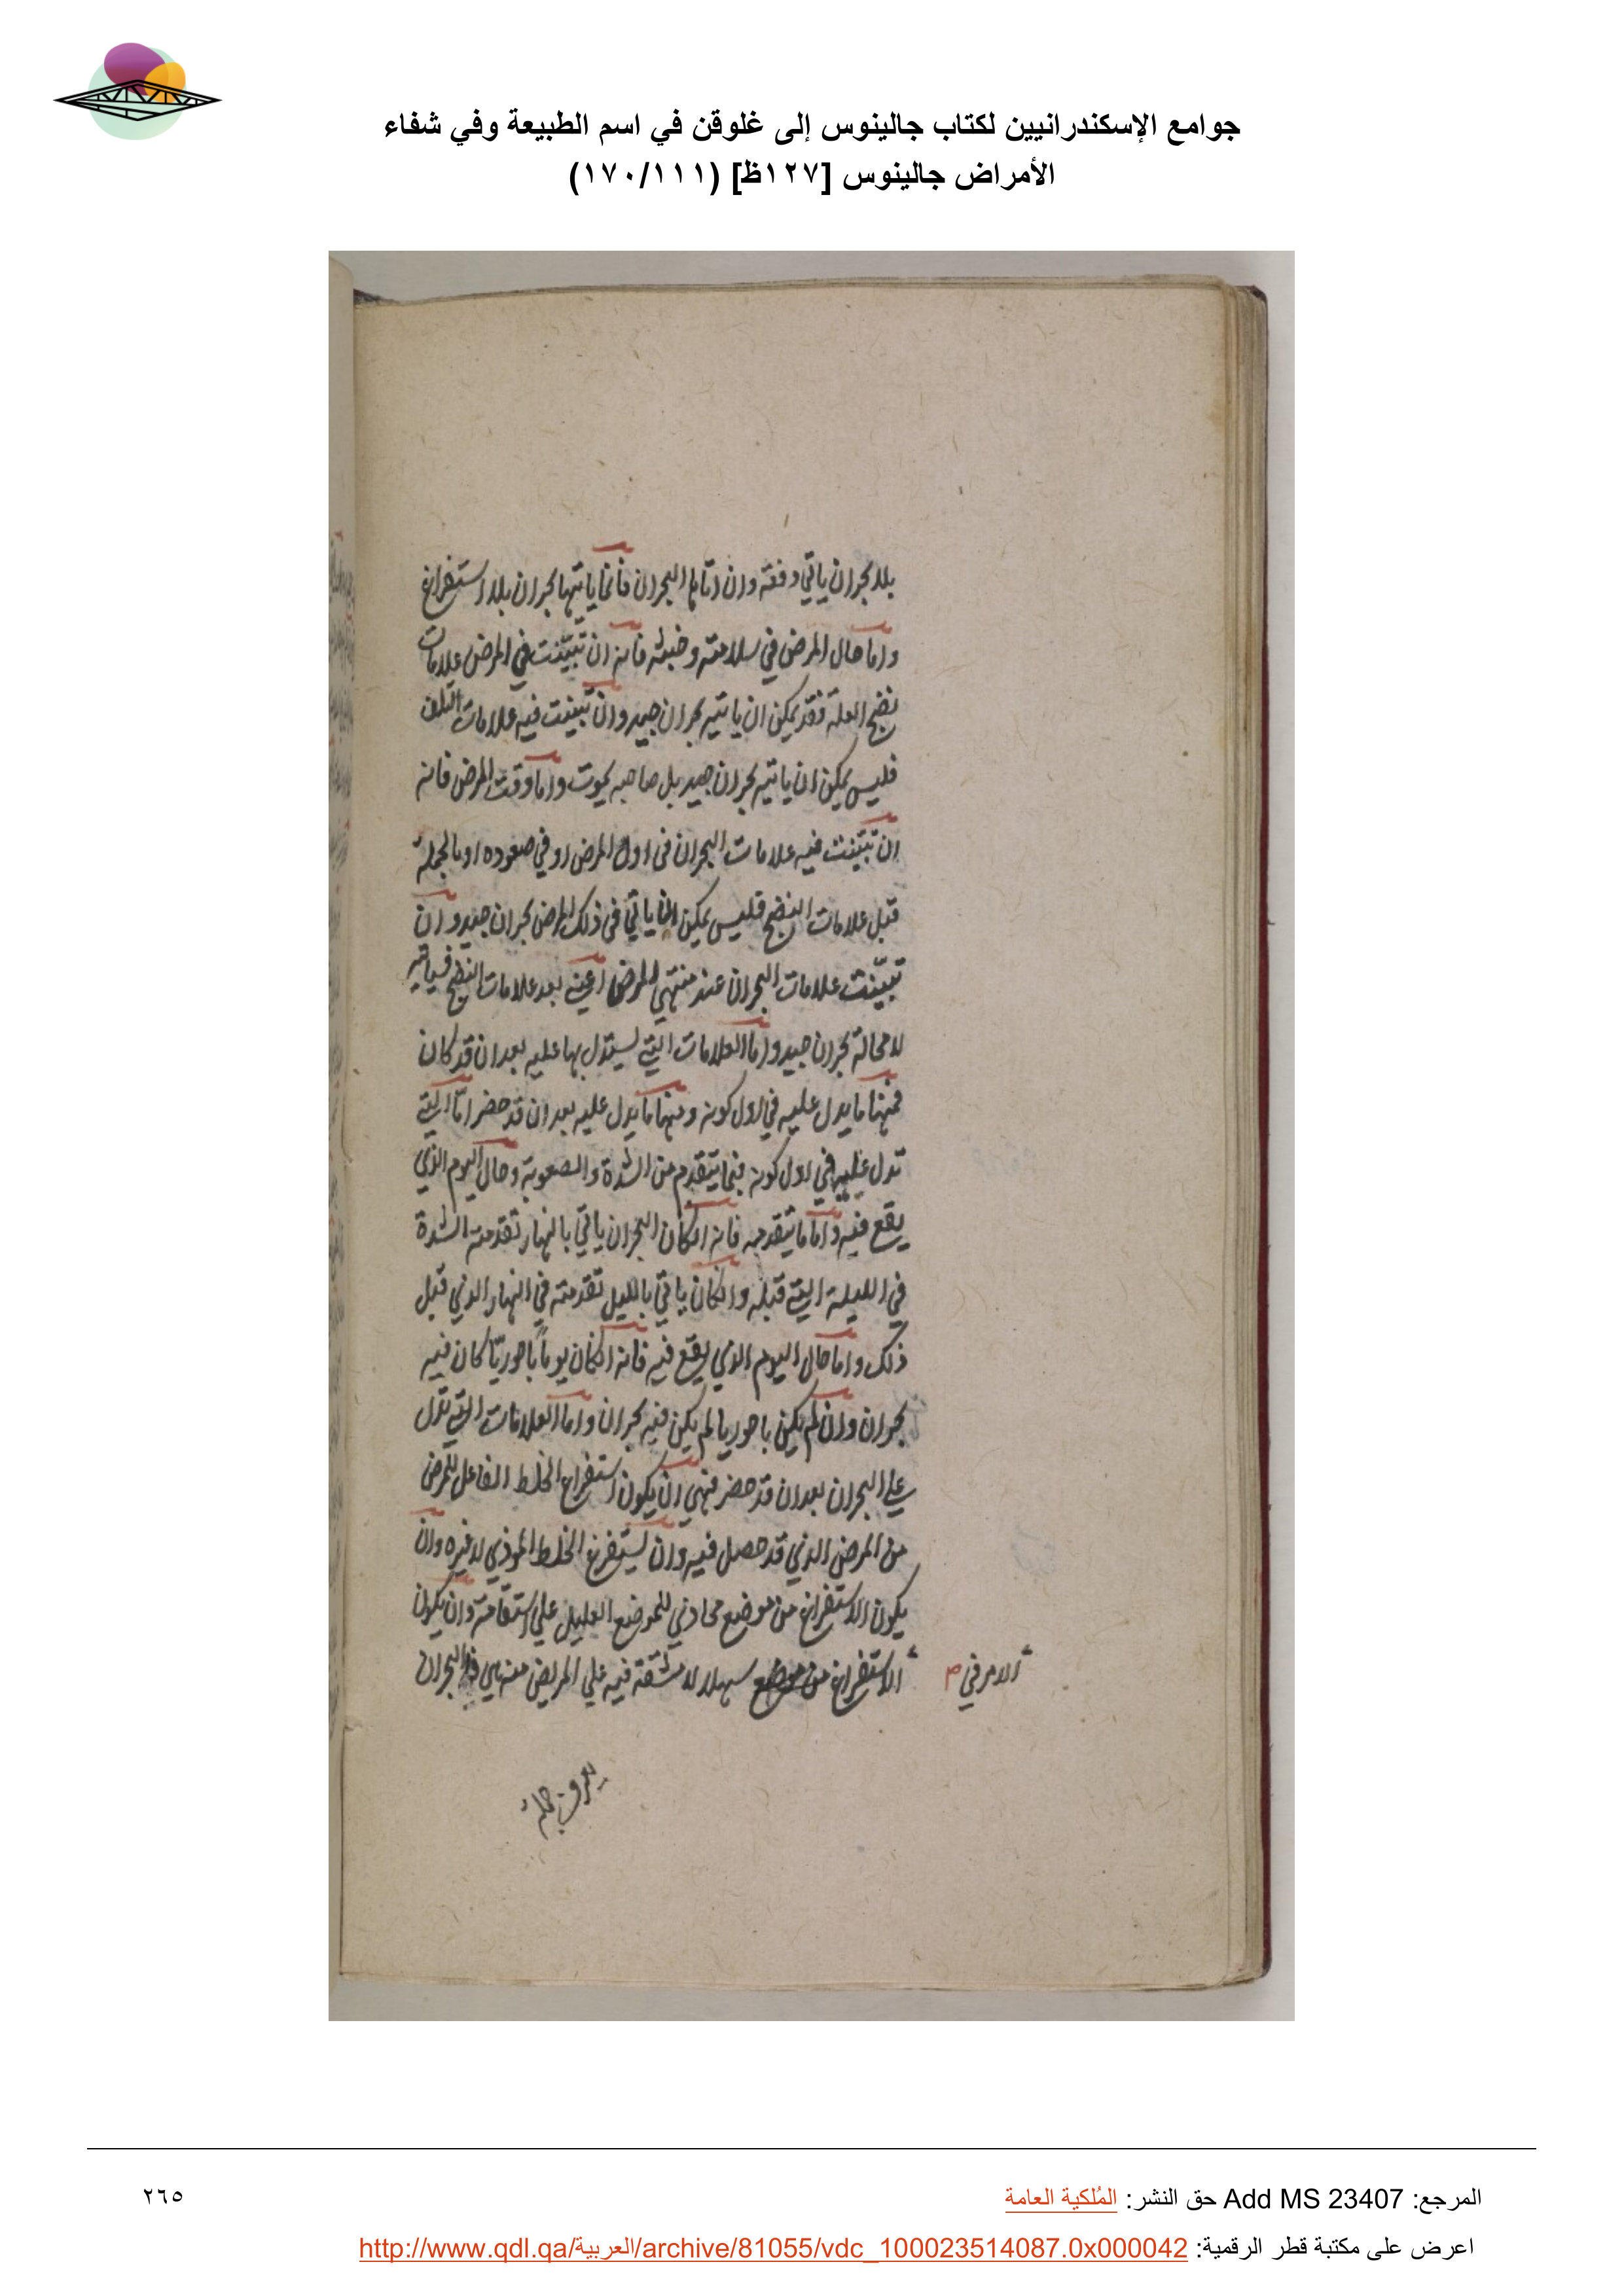 جوامع الإسكندرانيين لكتاب جالينوس إلى غلوقن في اسم الطبيعة وفي شفاء
الأمراض جالينوس [١٢٧ظ] (١٧٠/١١١)
بلا بحران ياتي دفعة وان اتاها البحران فانما ياتيها بحران بلا استفراغ
واما حال المرض في سلامته وخبثه فانه ان تبيّنت في المرض علامات
نضج العلة فقد يمكن ان ياتيه بحران جيد وان تبينت فيه علامات التلف
فليس يمكن ان ياتيه بحران جيد بل صاحبه يموت واما وقت المرض فانه
ان تبيّنت فيه علامات البحران في اول المرض او في صعوده او بالجملة
قبل علامات النضج فليس يمكن ان ياتي في ذلك المرض بحران جيد وان
تبيّنت علامات البحران عند منتهي المرض اعني بعد علامات النضج فياتيه
لا محالة بحران جيد واما العلامات التي يستدل بها عليه بعد ان قد كان
فمنها ما يدل عليه في اول كونه ومنها ما يدل عليه بعد ان قد حضر امّا التي
تدل عليه في اول كونه فما يتقدم من الشدة والصعوبة وحال اليوم الذي
يقع فيه واما ما يتقدمه فانه ان كان البحران ياتي بالنهار تقدمته الشدة
في الليلة التي قبله وان كان ياتي بالليل تقدمته في النهار الذي قبل
ذلك واما حال اليوم الذي يقع فيه فانه ان كان يوماً باحوريّا كان فيه
بحران وان لم يكن باحوريا لم يكن فيه بحران واما العلامات التي تدل
علي البحران بعد ان قد حضر فهي ان يكون استفراغ الخلط الفاعل للمرض
من المرض الذي قد حصل فيه وان يستفرغ الخلط الموذي لا غيره وان
يكون الاستفراغ من موضع محاذي للموضع العليل علي استقامة وان يكون
الاستفراغ من موضع سهلا لا مشقة فيه علي المريض منه هي البحران
الامر في م
يعرف جملة
المرجع: Add MS 23407 حق النشر: المُلكية العامة
٢٦٥
اعرض على مكتبة قطر الرقمية: http://www.qdl.qa/العربية/archive/81055/vdc_100023514087.0x000042